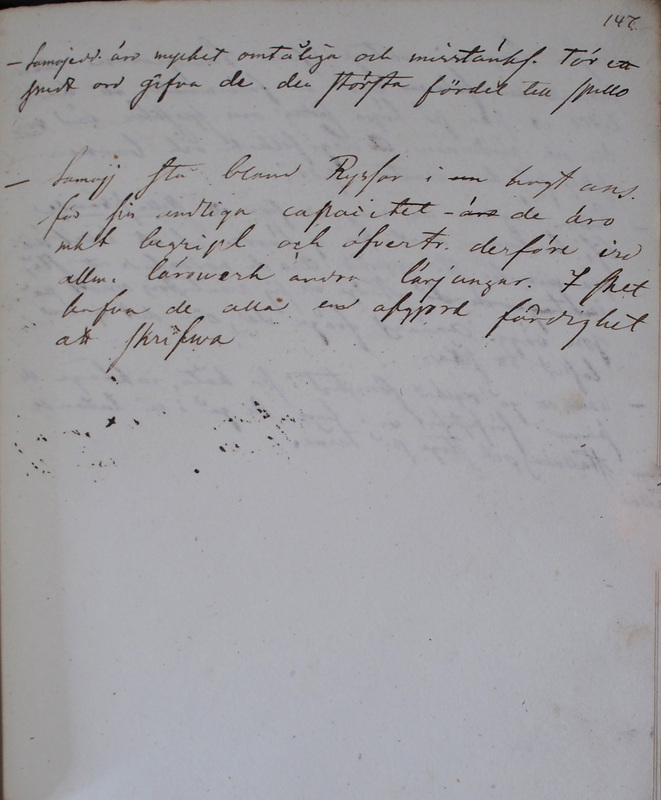 147.
– Samojed. äro mycket ömtåliga och misstänks. För ett
snedt ord gifva de den största fördel till spillo
– Samoj stå bland Ryssar i en högt ans.
för sin andliga capacitet – är de äro
mkt begripl och öfvertr. derföre vid
allm. lärowerk andra lärjungar. I sht
hafva de alla en afgjord färdighet
att skrifwa